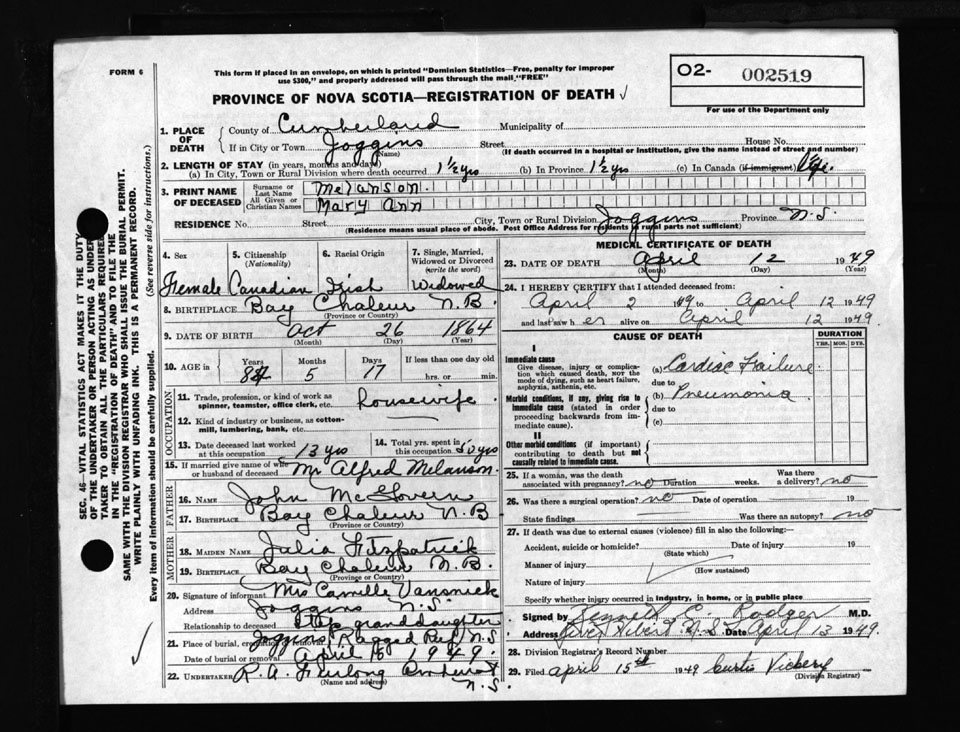 FORM 6
This form if placed in an envelope, on which is printed "Dominion Statistics—Free, penalty for improper
use $300," and properly addressed will pass through the mail "FREE"
O2- 002519
For use of the Department only
PROVINCE OF NOVA SCOTIA—REGISTRATION OF DEATH ✓
1. PLACE OF DEATH { County of Cumberland Municipality of
If in City or Town Joggins (Name) Street House No.
(If death occurred in a hospital or institution, give the name instead of street and number)
2. LENGTH OF STAY (in years, months and days)
(a) In City, Town or Rural Division where death occurred 1½ yrs (b) In Province 1½ yrs (c) In Canada (if immigrant) life.
3. PRINT NAME OF DECEASED { Surname or Last Name Melanson.
All Given or Christian Names Mary Ann
RESIDENCE No. Street City, Town or Rural Division Joggins Province N.S.
(Residence means usual place of abode. Post Office Address for residents in rural parts not sufficient)
4. Sex 5. Citizenship (Nationality) 6. Racial Origin 7. Single, Married, Widowed or Divorced (write the word)
Female Canadian Irish Widowed
8. BIRTHPLACE Bay Chaleur N.B.
(Province or Country)
9. DATE OF BIRTH Oct 26 1864
(Month) (Day) (Year)
10. AGE in Years Months Days If less than one day old
84 5 17 hrs. or min.
OCCUPATION
11. Trade, profession, or kind of work as spinner, teamster, office clerk, etc. housewife.
12. Kind of industry or business, as cotton-mill, lumbering, bank, etc.
13. Date deceased last worked at this occupation 13 yrs 14. Total yrs. spent in this occupation 50 yrs
15. If married give name of wife or husband of deceased Mr Alfred Melanson.
FATHER
16. NAME John McGovern
17. BIRTHPLACE Bay Chaleur N.B
(Province or Country)
MOTHER
18. MAIDEN NAME Julia Fitzpatrick
19. BIRTHPLACE Bay Chaleur N.B.
(Province or Country)
20. Signature of informant Mrs Camille Vansnick
Address Joggins N.S.
Relationship to deceased step granddaughter
21. Place of burial, cremation or removal Joggins Ragged Reef N.S
Date of burial or removal April 15 1949.
22. UNDERTAKER R.A. Furlong Amherst
(Name and address) N.S.
MEDICAL CERTIFICATE OF DEATH
23. DATE OF DEATH April 12 1949
(Month) (Day) (Year)
24. I HEREBY CERTIFY that I attended deceased from:
April 2 1949 to April 12 1949
and last saw h er alive on April 12 1949.
CAUSE OF DEATH DURATION
YRS. MOS. DYS.
I
Immediate cause
Give disease, injury or complication which caused death, not the mode of dying, such as heart failure, asphyxia, asthenia, etc.
(a) Cardiac Failure.
due to
Morbid conditions, if any, giving rise to immediate cause (stated in order proceeding backwards from immediate cause).
(b) Pneumonia
due to
(c)
II
Other morbid conditions (if important) contributing to death but not causally related to immediate cause.
25. If a woman, was the death associated with pregnancy? no Duration weeks. Was there a delivery? no
26. Was there a surgical operation? no Date of operation 19
State findings Was there an autopsy? no
27. If death was due to external causes (violence) fill in also the following:—
Accident, suicide or homicide? Date of injury 19
(State which)
Manner of injury
(How sustained)
Nature of injury
Specify whether injury occurred in industry, in home, or in public place
Signed by Kenneth E. Rodger M.D.
Address River Hebert N.S. Date April 13 1949.
28. Division Registrar's Record Number
29. Filed April 15th 1949 Curtis Vickery
(Division Registrar)
SEC. 46—VITAL STATISTICS ACT MAKES IT THE DUTY
OF THE UNDERTAKER OR PERSON ACTING AS UNDERTAKER
TO OBTAIN ALL THE PARTICULARS REQUIRED
IN THE "REGISTRATION OF DEATH" AND TO FILE THE
SAME WITH THE DIVISION REGISTRAR WHO SHALL ISSUE THE BURIAL PERMIT.
WRITE PLAINLY WITH UNFADING INK. THIS IS A PERMANENT RECORD.
Every item of information should be carefully supplied. (See reverse side for instructions.)